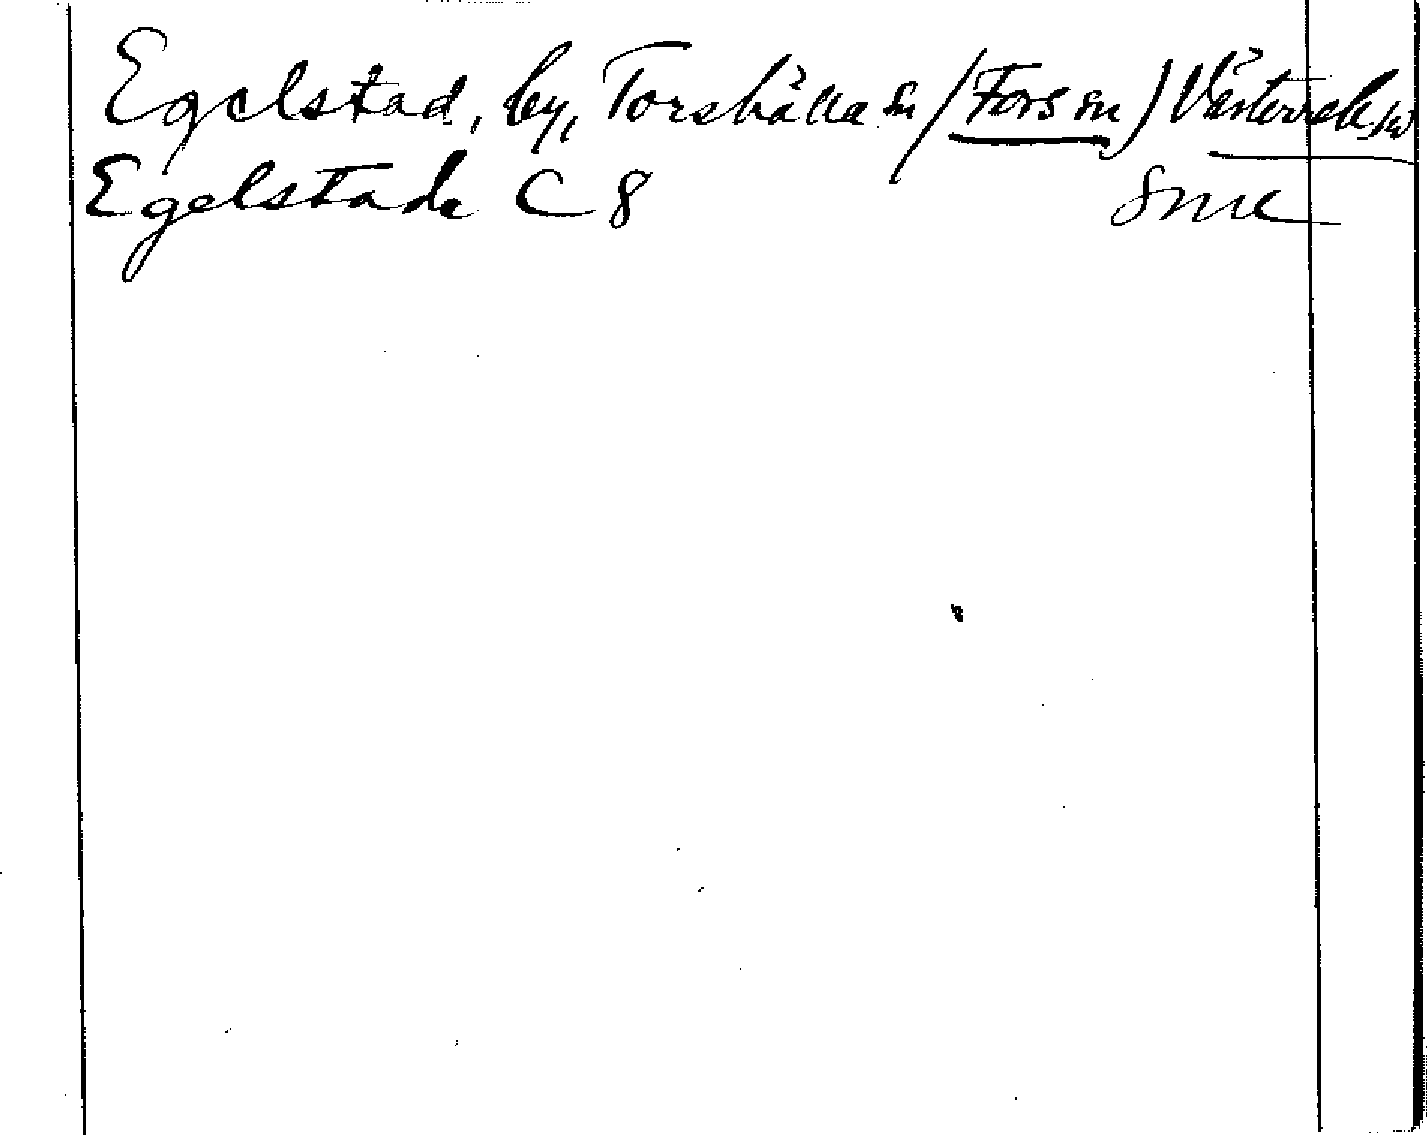 Egelstad, by, Torshälla sn (Fors sn) Västerrek. hd
Egelstada C 8 Sml